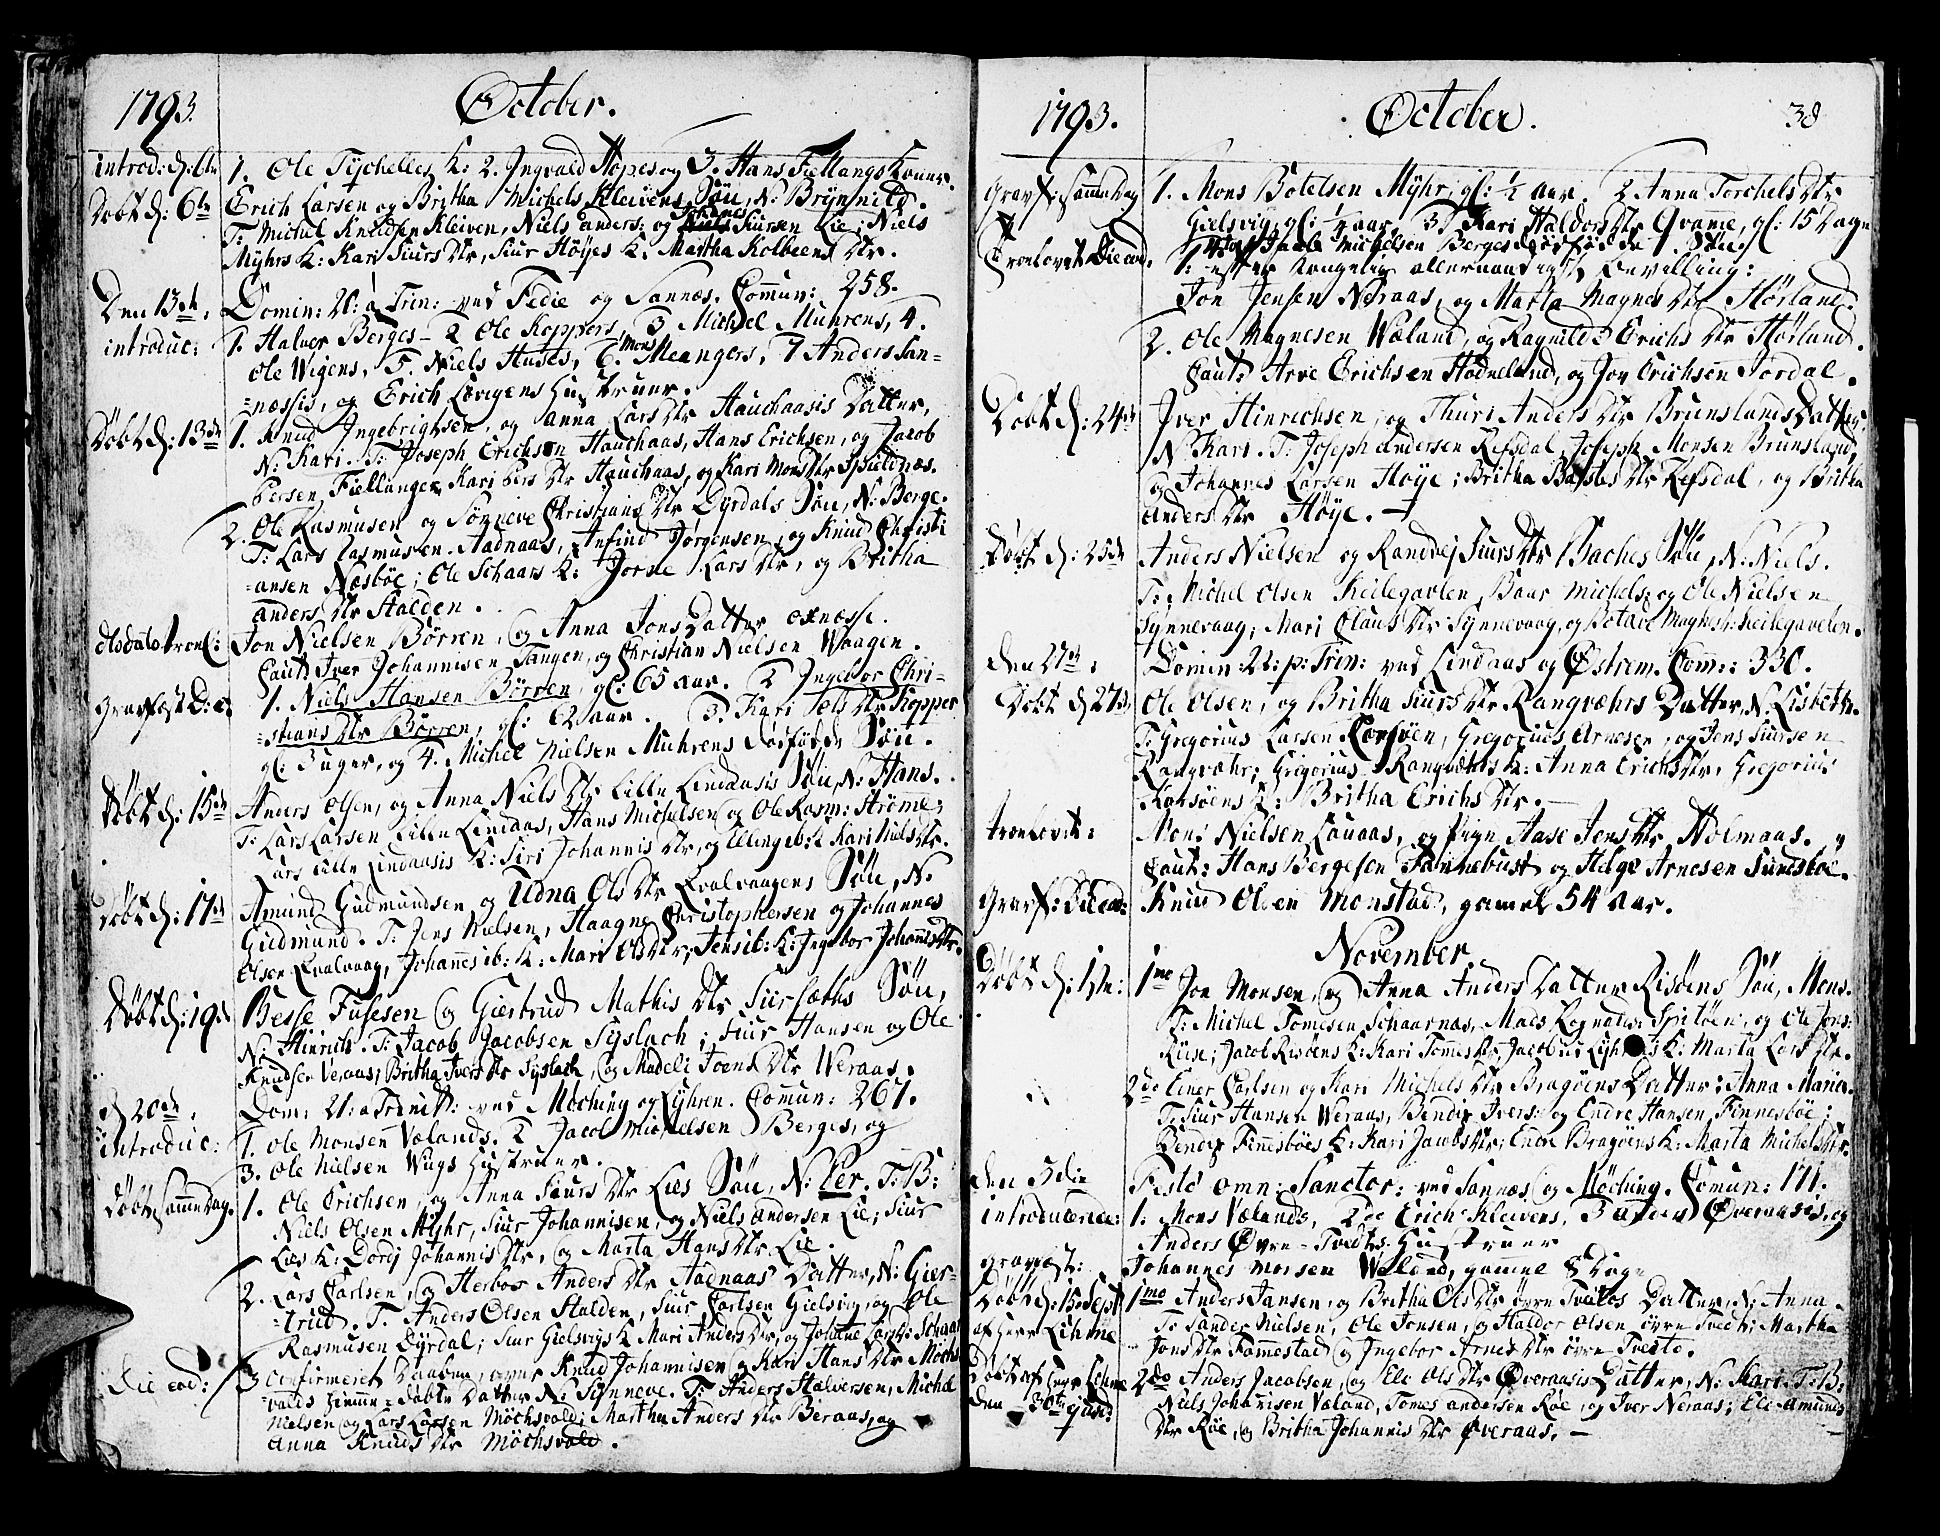 1793.
October.
introd: d: 6te
1. Ole Tÿchelles K: 2. Ingvald Hopes og 3. Hans Fiellangs Koner.
Döbt d: 6te
Erich Larsen og Britha Michels Kleivens Søn, N: Brÿnnild.
T: Michel Knudsen Kleiven, Niels anders: og Johannes Siursen Lie; Niels
Mÿhrs K: Kari Siurs Dtr, Siur Höÿes K: Martha Kolbeens Dtr.
Den 13de,
Domin: 20: a Trin: ved Fedie og Sannæs. Comun: 258.
introduc:
1. Halver Berges – 2 Ole Koppers, 3 Michel Muhrens, 4.
Ole Wigens, 5. Niels Huses, 6. Mons Meangers, 7 Anders San=
=næssis, og Erich Lövigens Hustruer.
Döbt d: 13de
1. Knud Ingebrigtsen, og Anna Lars Dtr Hauchaasis Datter,
N: Kari. T: Joseph Erichsen Hauchaas, Hans Erichsen, og Jacob
Persen Fiellanger, Kari Pers Dtr Hauchaas, og Kari Mons Dtr Spieldnæs.
2. Ole Rasmusen og Sönneve Christians Dtr Dÿrdals Søn, N: Berge.
T: Lars Rasmusen Aadnaas, Anfind Jörgensen, og Knud Christi
=ansen Næsböe; Ole Schaars K: Jorne Lars Dtr, og Britha
Anders Dtr Halden.
Alsdals trol:
Jon Nielsen Börren, og Anna Jons Datter Oxnæss.
Caut: Iver Johannisen Tangen, og Christian Nielsen Waagen.
Gravfæst D: e:
1. Niels Hansen Börren, gl: 65 aar. 2 Ingebor Chri=
=stians Dtr Börren, gl: 62 aar. 3. Kari Jels Dtr Kopper
gl: 3 uger, og 4. Michel Nielsen Muhrens dödfödde Søn.
Döbt d: 15de
Anders Olsen, og Anna Niels Dtr Lille Lindaasis Søn, N: Hans.
T: Lars Larsen Lille Lindaas, Hans Michelsen og Ole Rasm: Ströme;
Lars Lille Lindaasis K: Siri Johannis Dtr, og Kari Niels Dtr.
Döbt d: 17de
Amund Gudmundsen og Udna Ols Dtr Qvalvaagens Søn, N:
Gudmund. T: Jens Nielsen, Haagne Christophersen og Johannes
Olsen Qvalvaag, Johannes ib: K: Mari Ols Dtr; Jens ib: K: Ingebor Johannis Dtr.
Döbt d: 19de
Besse Fusesen og Giertrud Mathis Dtr Siursæths Søn,
N: Hinrich. T: Jacob Jacobsen Sÿslach; Siur Hansen og Ole
Knudsen Veraas; Britha Ivers Dtr Sÿslach, og Madeli Joens Dtr Veraas.
d 20de,
Dom: 21: a Trinit: ved Möching og Lÿhren. Comun: 267.
introduc:
1. Ole Monsen Vælands. 2 Jacob Michelsen Berges, og
3. Ole Nielsen Wugs Hustruer.
Döbt Samme Dag.
1. Ole Erichsen, og Anna Siurs Dtr Lies Søn, N: Per. T: B:
Niels Olsen Mÿhr, Siur Johannisen, og Niels Andersen Lie; Siur
Lies K: Dordj Johannis Dtr, og Marta Hans Dtr Lie.
2. Lars Carlsen, og Herbor Anders Dtr Aadnaas Datter, N: Gier=
=trud. T. Anders Olsen Halden, Siur Carlsen Gielsvig, og Ole
Rasmusen Dÿrdal; Siur Gielsvigs K: Mari Anders Dtr, og Johanne Lars Dtr Schaar
Die eod:
3 Confirmeret Daaben, over Knud Johannisen og Kari Hans Dtr Möchs
=valds hjemme=döbte Datter N: Sÿnneve. T: Anders Halversen, Michel
Nielsen og Lars Larsen Möchsvold; Martha Anders Dtr Beraas, og
Anna Knuds Dtr Möchsvold.
1793.
October.
38
Gravf: Samme Dag
1. Mons Botelsen Mÿhr, gl: ½ aar. 2 Anna Torchels Dtr
Gielsvig, gl: ¼ aar. 3. Kari Haldors Dtr Qvamme, gl: 15 Dage
4. Jacob Michelsen Berges dödfödde Søn.
Troelovet Die eod.
1: efter Kongelig allernaadigst Bevilling:
Jon Jensen Neraas, og Marta Magnes Dtr Hörland.
2. Ole Magnesen Wæland, og Ragnilde Erichs Dtr Hörland.
Caut: Arve Erichsen Hodneland, og Joy Erichsen Jordal.
Döbt d: 24de
Iver Hinrichsen, og Thuri Anders Dtr Brunslands Datter,
N: Kari. T. Joseph Andersen Refsdal, Joseph Monsen Brunsland,
og Johannes Larsen Höÿe; Britha Baltes Dtr Refsdal, og Britha
Anders Dtr Höÿe. –
Döbt d: 25de
Anders Nielsen og Randvej Siurs Dtr Baches Søn, N: Niels.
T: Michel Olsen Keilegavlen, Baar Michels: og Ole Nielsen
Sÿnnevaag; Mari Claus Dtr Sÿnnevaag, og Botilde Keilegavlen.
Den 27de,
Domin: 22: p: Trin: ved Lindaas og Østrem. Comm: 330.
Döbt d 27de
Ole Olsen, og Britha Siurs Dtr Rangvæhrs Datter, N. Lisbeth.
T: Gregorius Larsen Korsöen, Gregorius Arnesen, og Jens Siursen
Rangvæhr; Grigorius Rangvæhrs K: Anna Erichs Dtr, Gregorius
Korsöens K: Britha Erichs Dtr. –
Troelovet:
Mons Nielsen Lauaas, og Pign Aase Jens Dtr Holmaas.
Caut: Hans Bergesen Fannebust og Helge Arnesen Sundsböe.
Gravf: Die eod:
Knud Olsen Monstad, gamel 54 aar.
November.
Döbt d: 1ste:
1mo Jon Monsen, og Anna Anders Datter Risöens Søn, Mons.
T: Michel Tomesen Schaarnas, Mads Rognalds: Spitöen, og Ole Jons:
Riise; Jacob Risöens K: Kari Tomes Dtr, Jacobus K: Marta Lars Dtr.
2do Einer Carlsen og Kari Michels Dtr Bragöens Datter: Anna Maria.
T: Siur Hansen Weraas, Bendix Ivers: og Endre Hansen Finnesböe;
Bendix Finnesböes K: Kari Jacobs Dtr; Endre Bragöens K: Marta Michels Dtr.
Den 3die
Festo Omn: Sanctor: ved Sannæs og Möching. Comun: 171.
introducerede:
1: Mons Vælands, 2do Erich Kleivens, 3 Anders Øveraasis, og
Anders Øvre=Tvedtes Hustruer
gravfæst:
Johannes Monsen Wæland, gamel 8 Dage
Döbt d: 15. Sept
af Herr Lihme
1mo Anders Jansen, og Britha Ols Dtr övre Tveitos Datter, N: Anna.
T: Sander Nielsen, Ole Jonsen, og Haldor Olsen övre Tvedt; Martha
Jons Dtr Fammestad og Ingebor Arnes Dtr övre Tveite.
Döbt af Herr Lihme
den 30te
2do Anders Jacobsen, og Ele Ols Dtr Øveraasis Datter, N: Kari. T. B:
Niels Johannisen Væland, Tomes Andersen Röe, og Iver Neraas; Ele Amunds
Dtr Röe, og Britha Johannis Dtr Øveraas. –